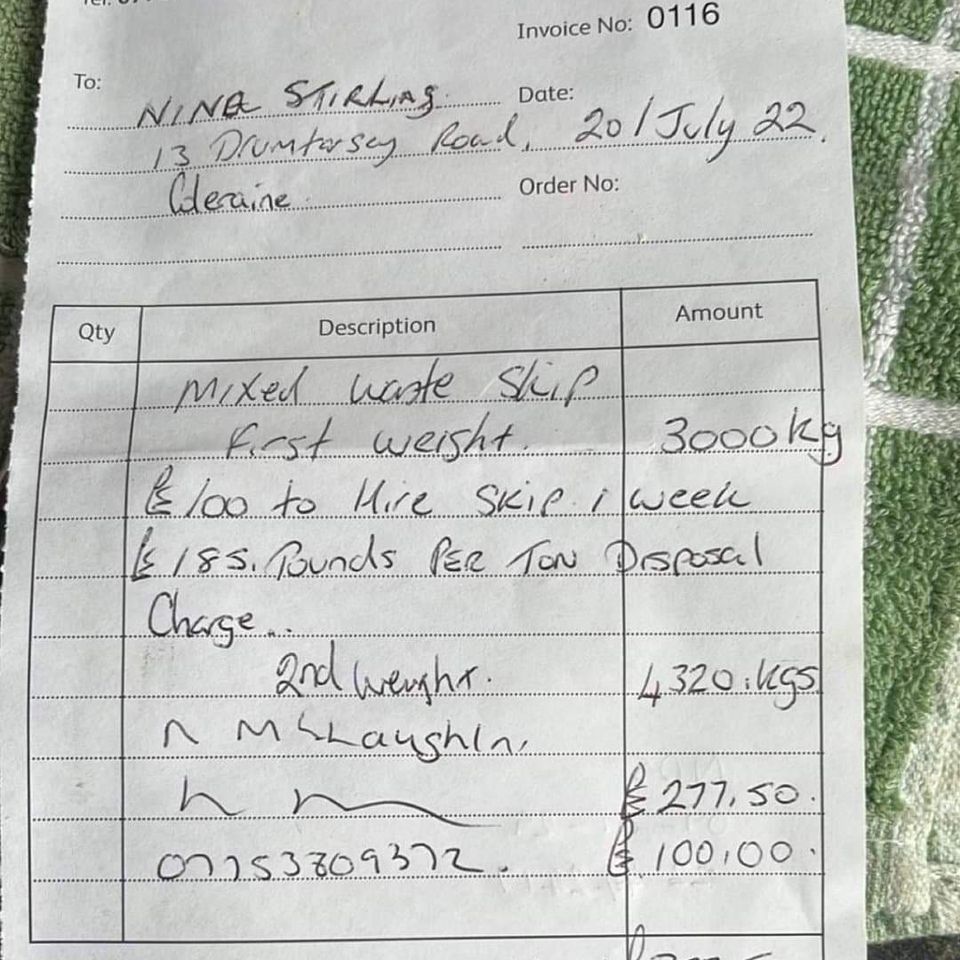 Invoice No: 0116
To:
NINA STIRLING.
Date:
13 Drumtarsey Road, 20/July 22.
Coleraine.
Order No:
Qty Description Amount
Mixed waste Skip
First weight. 3000kg
£100 to Hire Skip. 1 week
£185. Pounds PER TON Disposal
Charge..
2nd Weight. 4320.kgs
McLaughlin.
£277.50.
07753809372. £100,00.